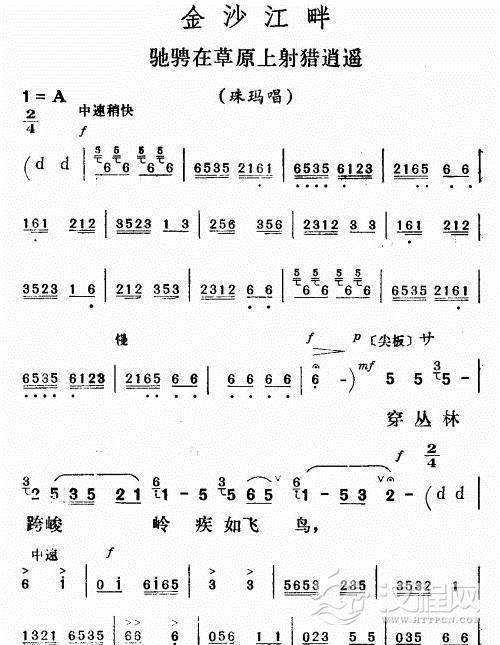 金沙江畔
驰骋在草原上射猎逍遥
1=A （珠玛唱）
2/4 中速稍快
f
(d d 5 6 5 6 5 6 5 6 | 6535 2161 | 6535 6123 | 2165 6 6 |
161 212 | 3523 1 3 | 256 356 | 2312 3 3 | 161 212 |
3523 1 6 | 212 353 | 2312 6 6 | 5 6 5 6 5 6 5 6 | 6535 2161 |
慢 f p 〔尖板〕サ
6535 6123 | 2165 6 6 | 6 6 6 6 | 6 -) mf 5 5 3 5
穿丛林
f 2/4
3 2 5 35 21 6 1 - 5 5 65 6 1 - 53 2 - (d d
跨峻 岭疾如飞 鸟，
中速 f
6 i | 0i 6i65 | 3 3 | 5653 235 | 3532 1 |
1321 6535 | 66 6 | 056 11 | 023 55 | 035 66
汉程网
WWW.HTTPCN.COM